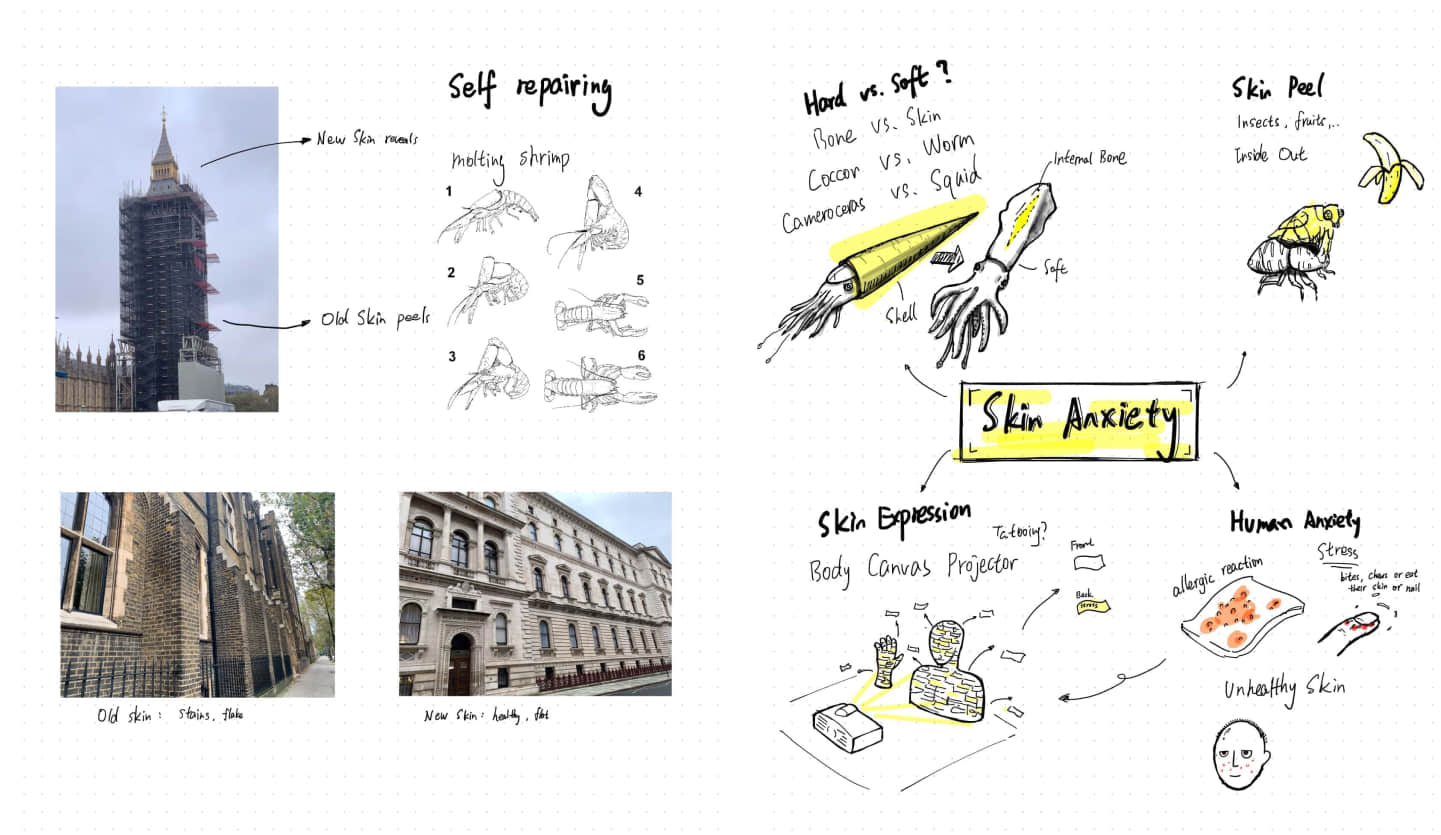 Self repairing
New Skin reveals
molting shrimp
1
4
2
5
Old Skin peels
3
6
Old skin: stains, flake
New Skin: healthy, flat
Hard vs. Soft?
Bone vs. Skin
Coccon vs. Worm
Cameroceras vs. Squid
Internal Bone
Soft
Shell
Skin Peel
Insects, fruits,..
Inside Out
Skin Anxiety
Skin Expression
Tatooing?
Body Canvas Projector
Front
Back
stress
Human Anxiety
Stress
allergic reaction
bites, chews or eat
their skin or nail
Unhealthy Skin